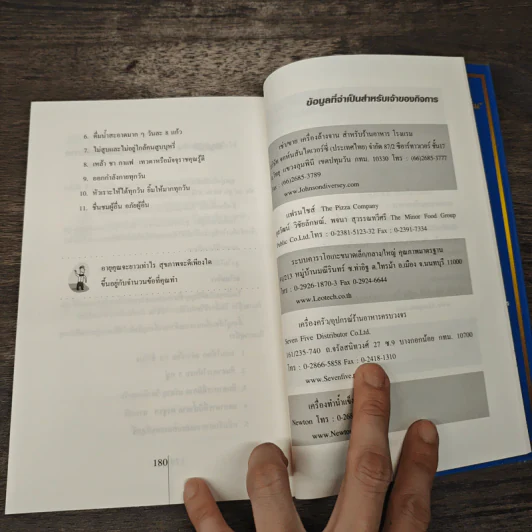 6. ดื่มน้ำสะอาดมาก ๆ วันละ 8 แก้ว
7. ไม่สูบและไม่อยู่ใกล้คนสูบบุหรี่
8. เหล้า ชา กาแฟ เทวดาหรือมัจจุราชคุณรู้ดี
9. ออกกำลังกายทุกวัน
10. หัวเราะให้ได้ทุกวัน ยิ้มให้มากทุกวัน
11. ชื่นชมผู้อื่น อภัยผู้อื่น
อายุคุณจะยาวเท่าไร สุขภาพจะดีเพียงใด
ขึ้นอยู่กับจำนวนข้อที่คุณทำ
180
ข้อมูลที่จำเป็นสำหรับเจ้าของกิจการ
เช่า/ขาย เครื่องล้างจาน สำหรับร้านอาหาร โรงแรม
จอห์นสันไดเวอร์ซี่ (ประเทศไทย) จำกัด 87/2 ซีอาร์ซีทาวเวอร์ ชั้น17
แขวงลุมพินี เขตปทุมวัน กทม. 10330 โทร : (66)2685-3777
(66)2685-3789
www.Johnsondiversey.com
แฟรนไชส์ The Pizza Company
วิชัยลักษณ์, พจนา สุวรรณทวีศรี The Minor Food Group
Public. Co.Ltd. โทร : 0-2381-5123-32 Fax : 0-2391-7334
ระบบคาราโอเกะขนาดเล็กกลางใหญ่ คุณภาพมาตรฐาน
หมู่บ้านมณีรินทร์ ซ.ท่าอิฐ ต.ไทรม้า อ.เมือง จ.นนทบุรี 11000
โทร : 0-2926-1870-3 Fax 0-2924-6644
www.Leotech.co.th
เครื่องครัว/อุปกรณ์ร้านอาหารครบวงจร
Seven Five Distributor Co.Ltd.
161/235-740 ถ.จรัลสนิทวงศ์ 27 ข.9 บางกอกน้อย กทม. 10700
โทร : 0-2866-5858 Fax : 0-2418-1310
www.Sevenfive.
เครื่องทำน้ำแข็ง
Newton โทร : 0-26
www.New